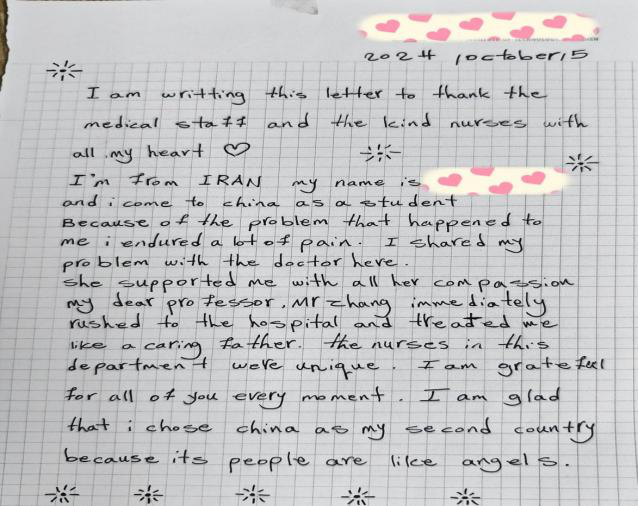 2024 / october / 5
I am writting this letter to thank the
medical staff and the kind nurses with
all my heart ♡
I'm from IRAN my name is
and i come to china as a student
Because of the problem that happened to
me i endured a lot of pain. I shared my
problem with the doctor here.
she supported me with all her compassion
my dear professor, Mr zhang immediately
rushed to the hospital and treated me
like a caring father. the nurses in this
department were unique. I am gratefeel
for all of you every moment. I am glad
that i chose china as my second country
because its people are like angels.